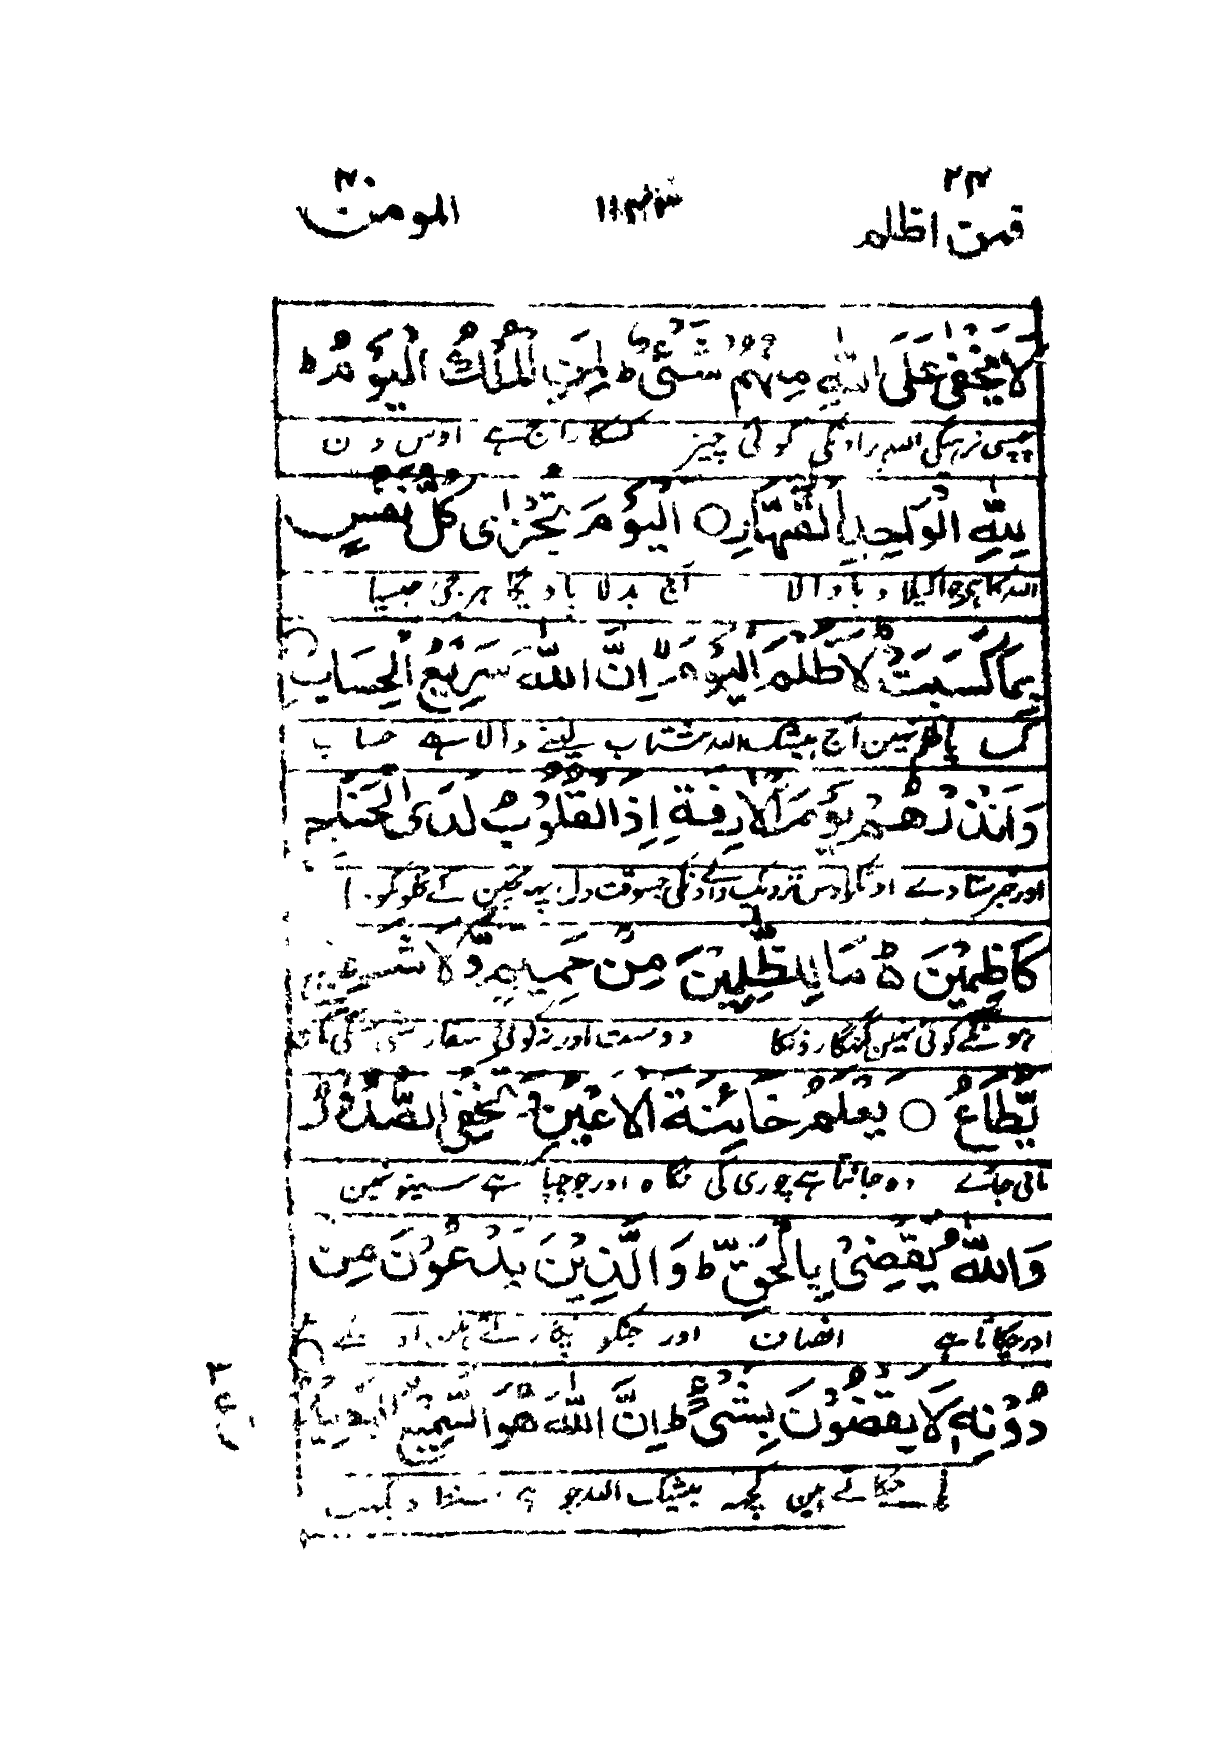 ۲۴ ۴۰
فمن اظلم المومن
لَا يَخْفٰى عَلَى اللّٰهِ مِنْهُمْ شَىْءٌ ؕ لِمَنِ الْمُلْكُ الْيَوْمَ ؕ
چھپی نرہیگی اللہ پر اونکی کوئی چیز کسکا راج ہے اوس دن
لِلّٰهِ الْوَاحِدِ الْقَهَّارِ ○ اَلْيَوْمَ تُجْزٰى كُلُّ نَفْسٍ
اللہ کا ہی جو اکیلا دباو والا آج بدلا پاویگا ہر جی جیسا
بِمَا كَسَبَتْ ؕ لَا ظُلْمَ الْيَوْمَ ؕ اِنَّ اللّٰهَ سَرِيْعُ الْحِسَابِ
ظلم نہین آج بیشک اللہ شتاب لینے والا ہے حساب
وَاَنْذِرْهُمْ يَوْمَ الْاٰزِفَةِ اِذِ الْقُلُوْبُ لَدَى الْحَنَاجِرِ
اور خبر سنا دے اونکو اوس نزدیک والے دنکی جسوقت دل پہنچینگے گلو کو
كَاظِمِيْنَ ؕ مَا لِلظّٰلِمِيْنَ مِنْ حَمِيْمٍ وَّلَا شَفِيْعٍ
کوئی نہین گنہگارونکا دوست اور نہ کوئی سفارشی
يُّطَاعُ ○ يَعْلَمُ خَائِنَةَ الْاَعْيُنِ وَمَا تُخْفِى الصُّدُوْرُ
مانی جائے وہ جانتا ہے چوری کی نگاہ اور جو چھپا ہے سینونمین
وَاللّٰهُ يَقْضِىْ بِالْحَقِّ ؕ وَالَّذِيْنَ يَدْعُوْنَ مِنْ
اور چکاتا ہے انصاف اور جنکو پکارتے ہین
دُوْنِهٖ لَا يَقْضُوْنَ بِشَىْءٍ ؕ اِنَّ اللّٰهَ هُوَ السَّمِيْعُ الْبَصِيْرُ
چکاتے ہین کچھ بیشک اللہ جو ہی سنتا دیکھتا